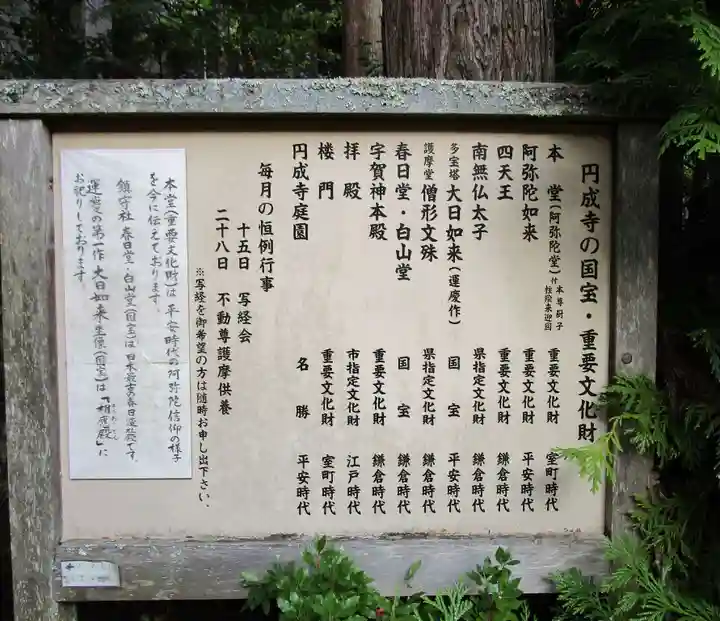 円成寺の国宝・重要文化財
本堂(阿弥陀堂)付 本尊厨子 板絵来迎図 重要文化財 室町時代
阿弥陀如来 重要文化財 平安時代
四天王 重要文化財 鎌倉時代
南無仏太子 県指定文化財 鎌倉時代
多宝塔 大日如来(運慶作) 国宝 平安時代
護摩堂 僧形文殊 県指定文化財 鎌倉時代
春日堂・白山堂 国宝 鎌倉時代
宇賀神本殿 重要文化財 鎌倉時代
拝殿 市指定文化財 江戸時代
楼門 重要文化財 室町時代
円成寺庭園 名勝 平安時代
毎月の恒例行事
十五日 写経会
二十八日 不動尊護摩供養
※写経を御希望の方は随時お申し出下さい。
本堂(重要文化財)は 平安時代の阿弥陀信仰の様子
を今に伝えております。
鎮守社 春日堂・白山堂(国宝)は 日本最古の春日造社殿です。
運慶の第一作 大日如来坐像(国宝)は「相應殿」に
お祀りしております。